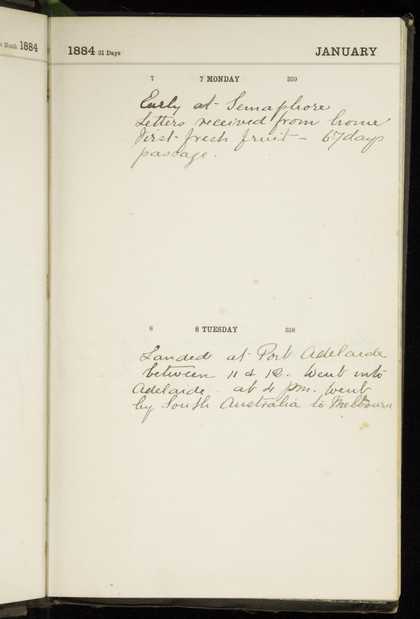 1884
1884 31 Days JANUARY
7 7 MONDAY 359
Early at Semaphore
Letters received from home
First fresh fruit – 67 days
passage.
8 8 TUESDAY 358
Landed at Port Adelaide
between 11 & 12. Went into
Adelaide - at 4 p.m. went
by South Australia to Melbourn